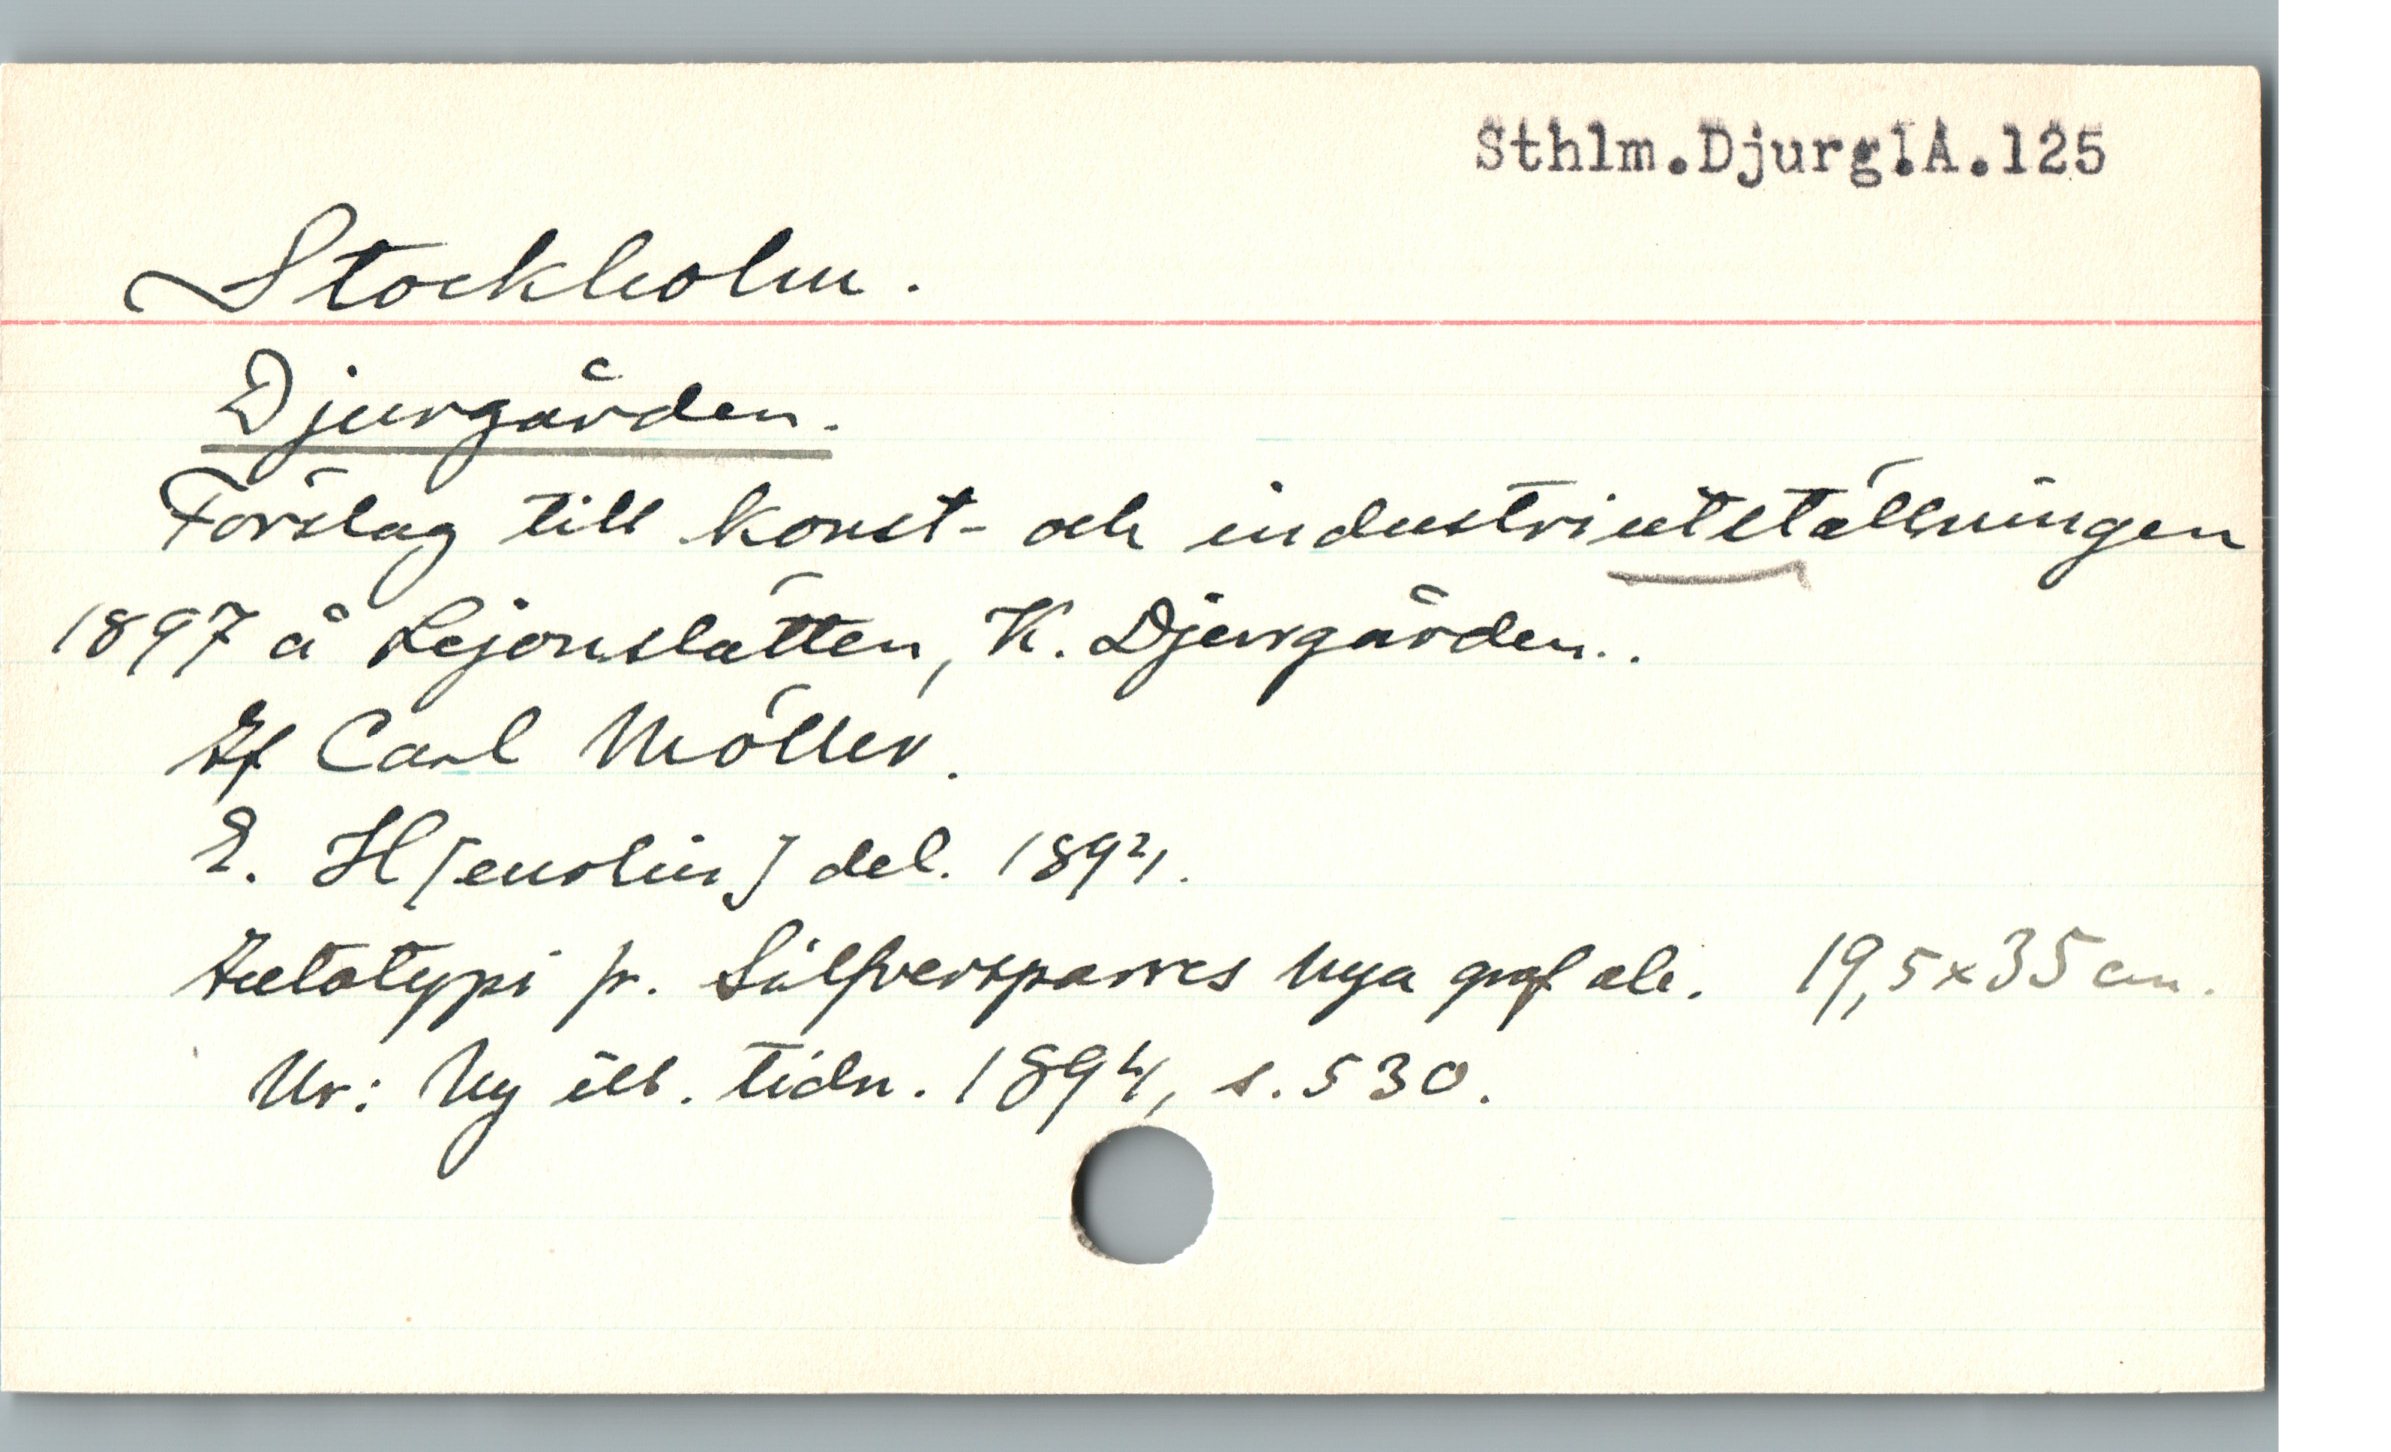 Sthlm.Djurg.A.125
Stockholm.
Djurgården.
Förslag till konst- och industriutställningen
1897 å Lejonslätten, K. Djurgården..
Af Carl Möller.
E. H[enolin] del. 1894.
Autotypi fr. Silfversparres Nya graf ab. 19,5x35 cm.
Ur: Ny ill. tidn. 1894, s. 530.